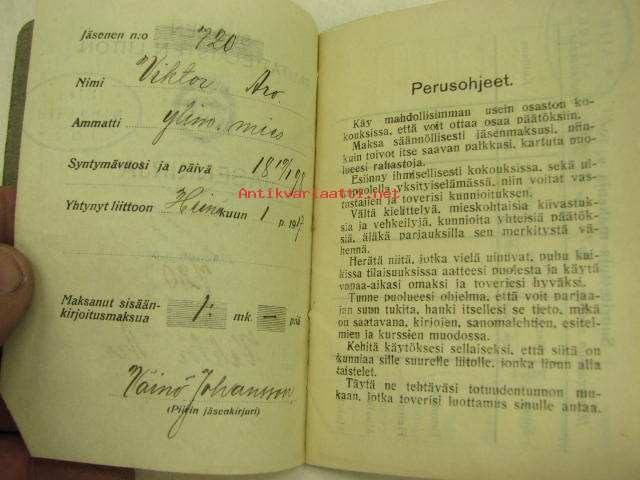 Jäsenen n:o 720
Nimi Viktor Aro.
Ammatti ylim. mies
Syntymävuosi ja päivä
Yhtynyt liittoon Heinäkuun 1 p. 1917
Maksanut sisään-
kirjoitusmaksua 1: mk. — p:iä
Väinö Johansson.
(Piirin jäsenkirjuri)
Antikvariaatti.net
Perusohjeet.
Käy mahdollisimman usein osaston ko-
kouksissa, että voit ottaa osaa päätöksiin.
Maksa säännöllisesti jäsenmaksusi, niin-
kuin toivot itse saavan palkkasi, kartuta puo-
lueesi rahastoja.
Esiinny ihmisellisesti kokouksissa, sekä ul-
kopuolella yksityiselämässä, niin voitat vas-
tustajien ja toverisi kunnioituksen.
Vältä kielittelyä, mieskohtaisia kiivastuk-
sia ja vehkeilyjä, kunnioita yhteisiä päätök-
siä, äläkä parjauksilla sen merkitystä vä-
hennä.
Herätä niitä, jotka vielä uinuvat, puhu kai-
kissa tilaisuuksissa aatteesi puolesta ja käytä
vapaa-aikasi omaksi ja toveriesi hyväksi.
Tunne puolueesi ohjelma, että voit parjaa-
jan suun tukita, hanki itsellesi se tieto, mikä
on saatavana, kirjojen, sanomalehtien, esitel-
mien ja kurssien muodossa.
Kehitä käytöksesi sellaiseksi, että siitä on
kunniaa sille suurelle liitolle, jonka lipun alla
taistelet.
Täytä ne tehtäväsi totuudentunnon mu-
kaan, jotka toverisi luottamus sinulle antaa.